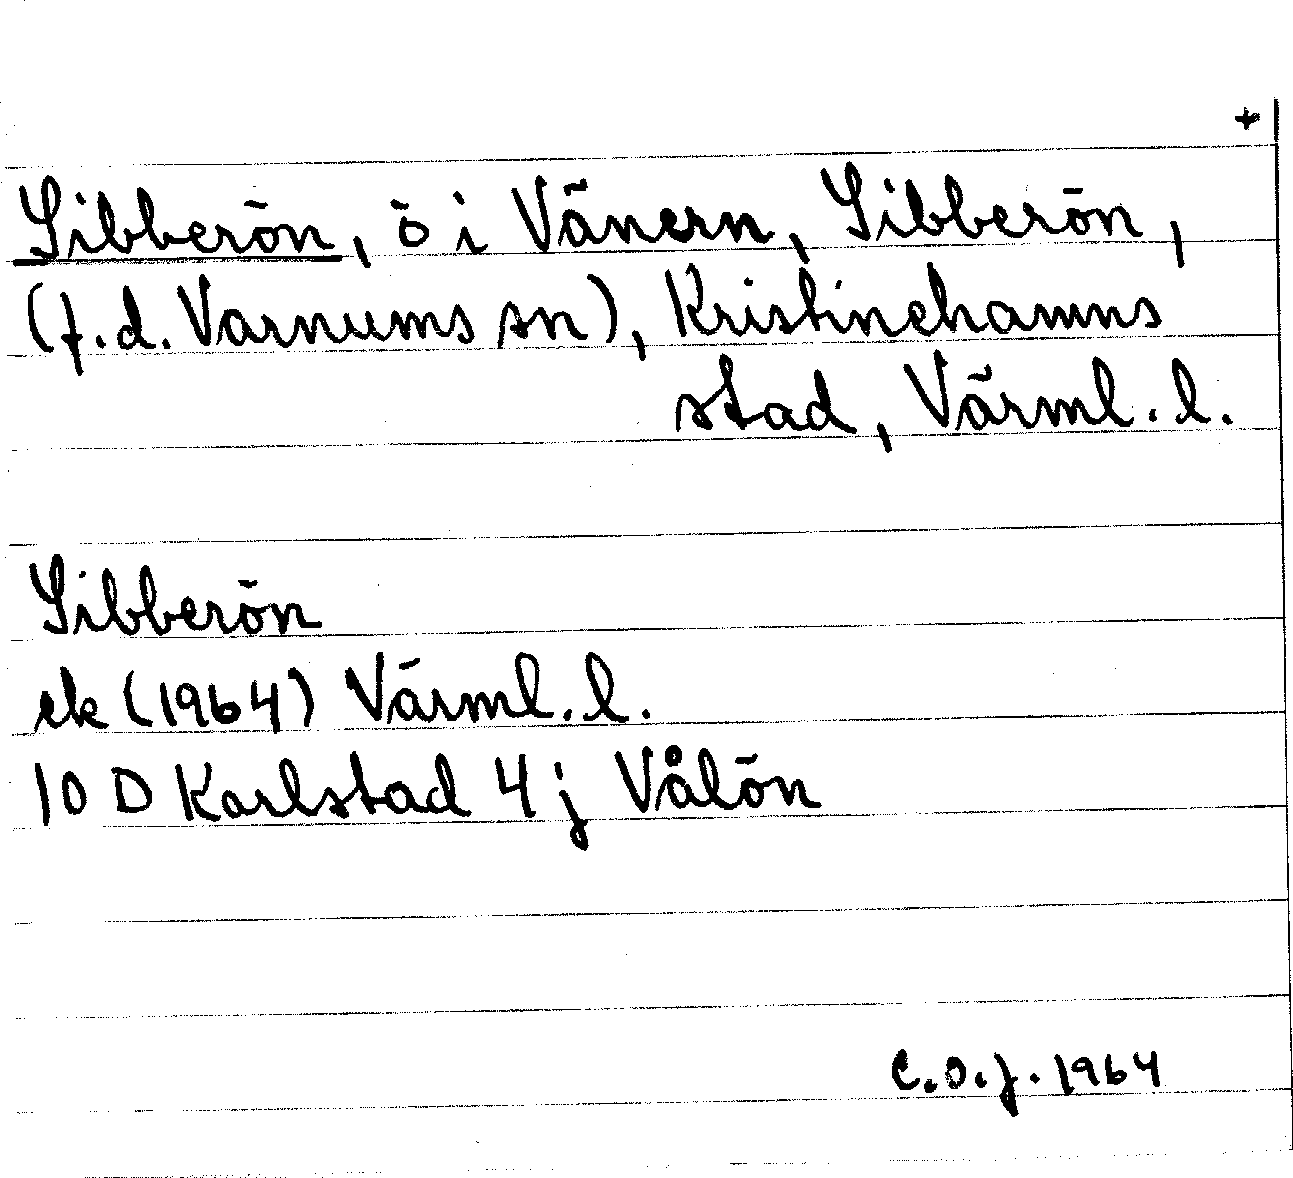 +
Sibberön, ö i Vänern, Sibberön,
(f.d. Varnums sn), Kristinehamns
stad, Värml. l.
Sibberön
ek (1964) Värml. l.
10 D Karlstad 4 j Vålön
C.O.J. 1964